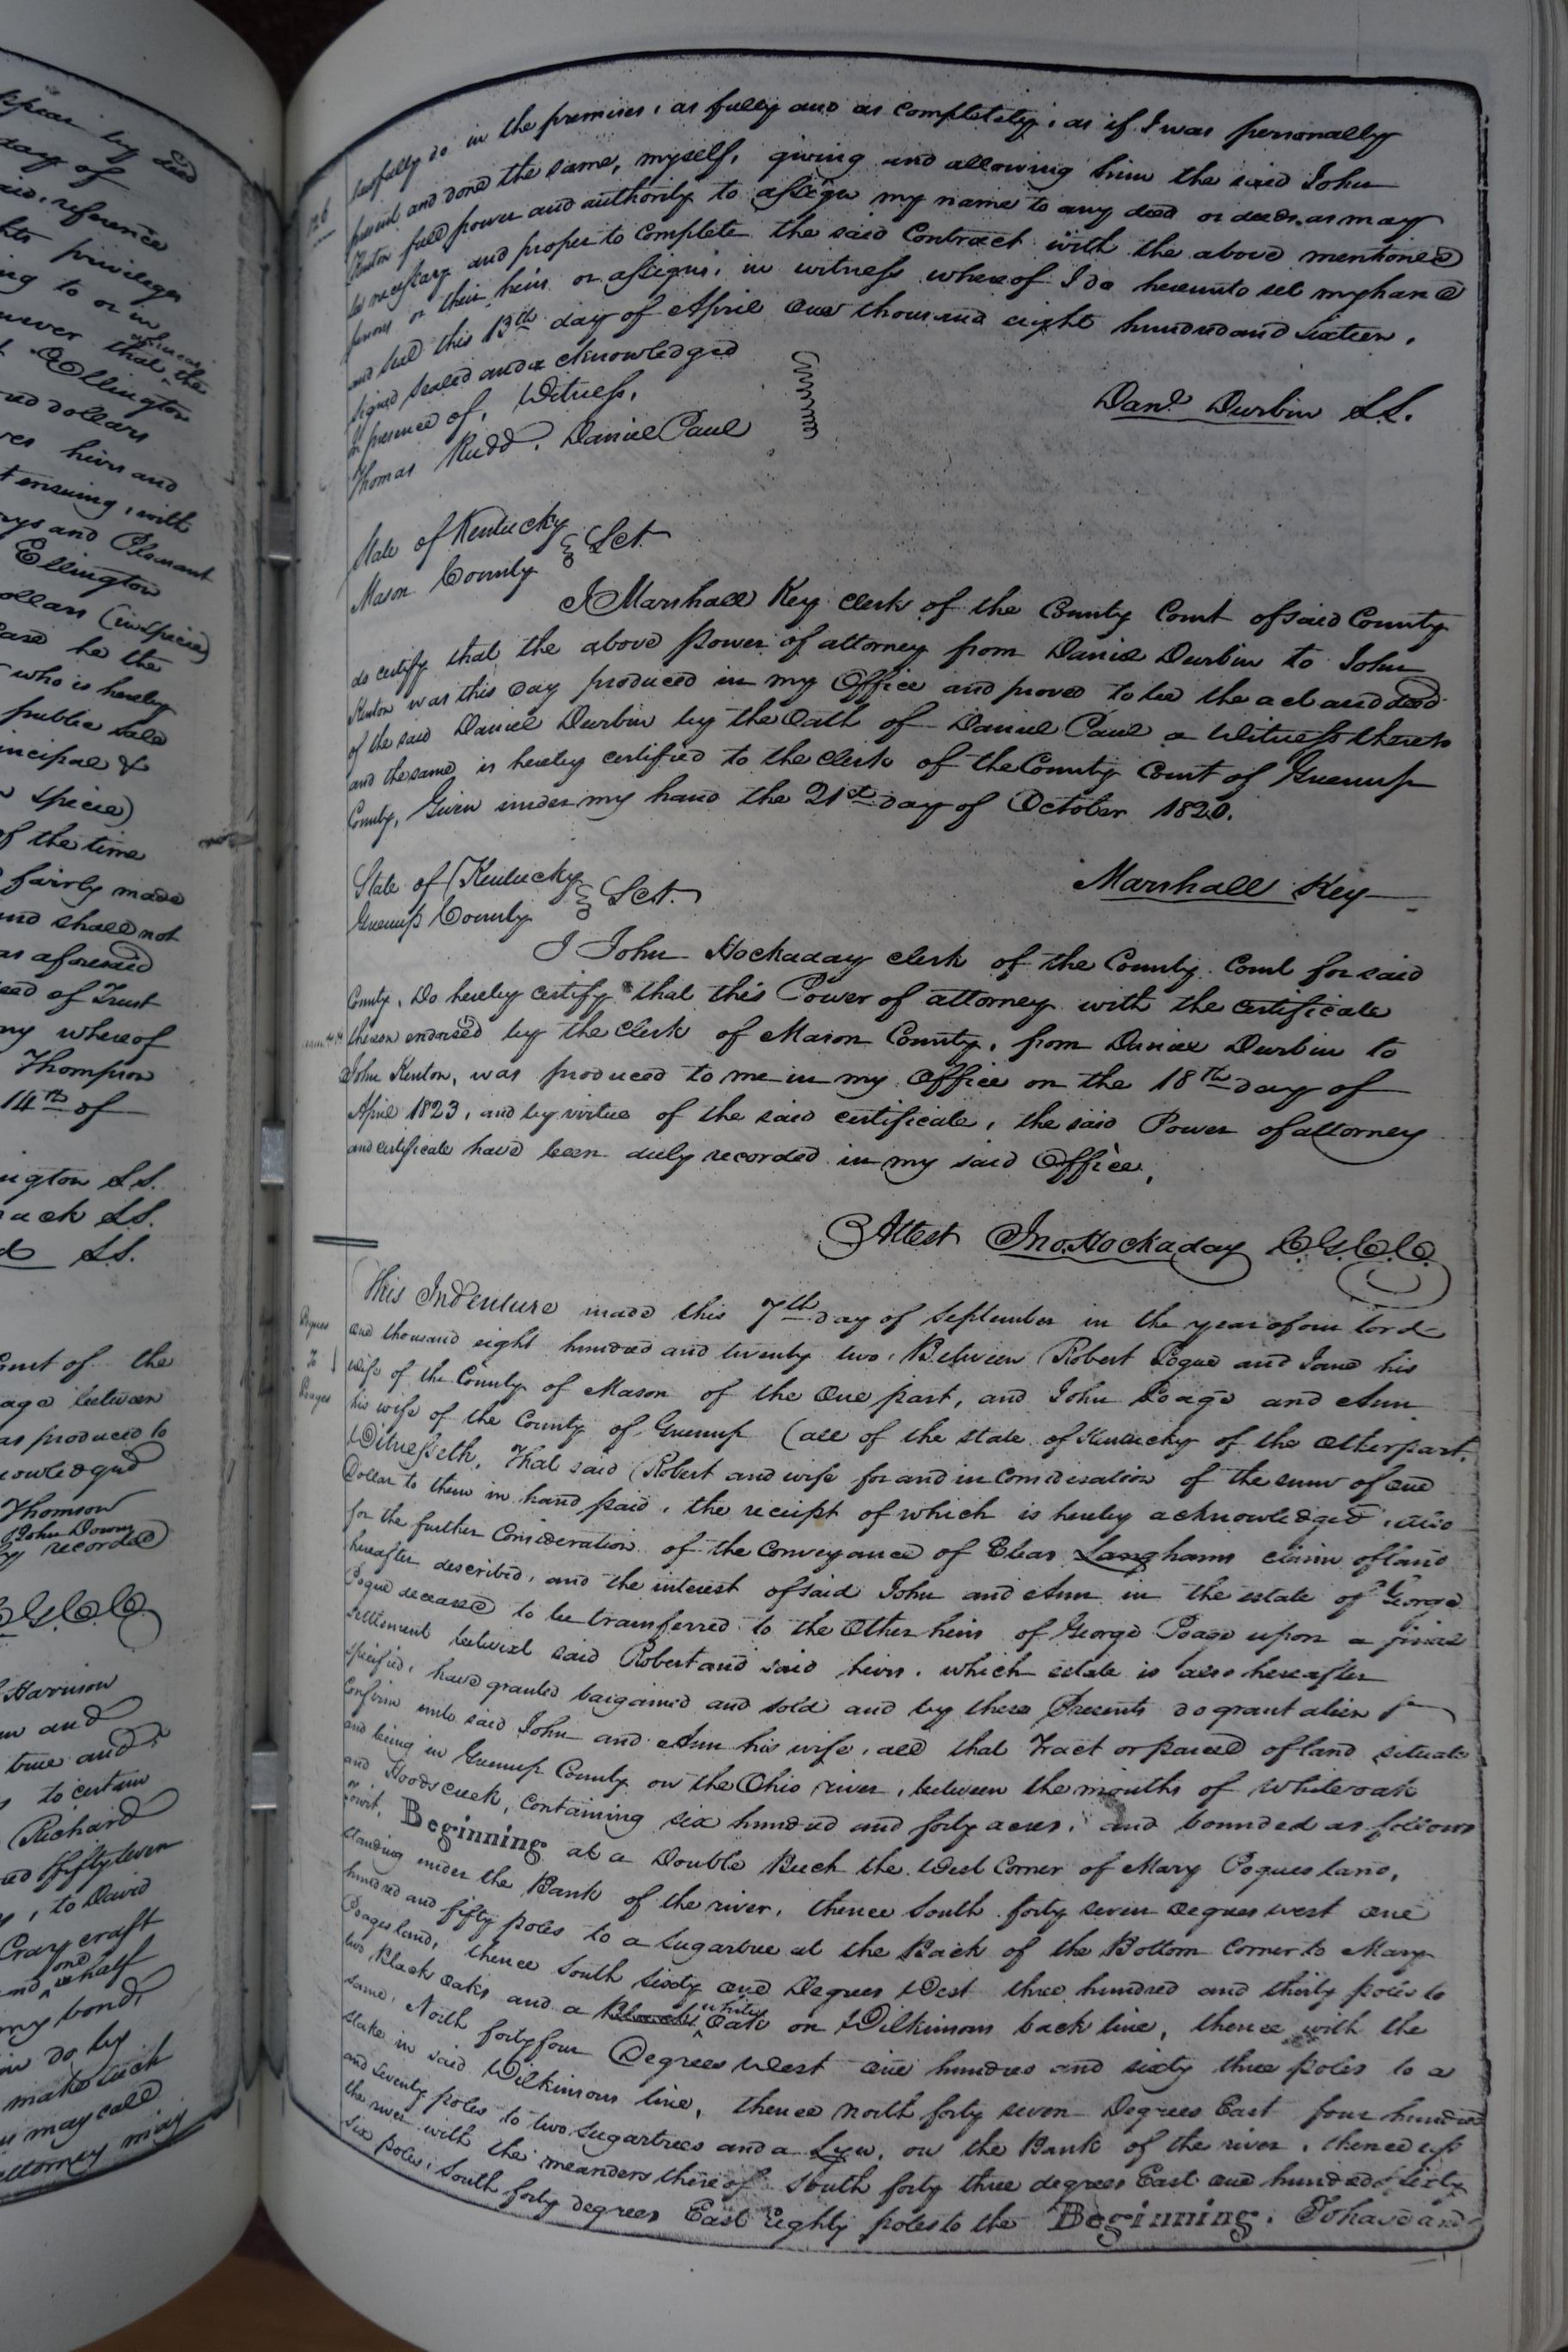 ppear by deed
day of
said, reference
privileges
ing to or in
never that the
Ellington
ed dollars
res heirs and
t ensuing, with
ays and Pleasant
Ellington
ollars (in specie)
case he the
who is hereby
public sale
incipal &
specie)
of the time
fairly made
and shall not
as aforesaid
eed of Trust
ny whereof
Thompson
14th of
ngton LS.
ack LS.
LS.
ourt of the
age between
as produced to
nowledged
Thomson
John Downs
y recorded
C.G.C.C.
Harrison
and
true and
to certain
Richard
ed & fifty seven
, to David
Craycraft
one
and half
my bond,
do by
make such
may call
attorney may
126
lawfully do in the premises, as fully and as completely, as if I was personally
present and done the same, myself, giving and allowing him the said John
Kenton full power and authority to assign my name to any deed or deeds as may
be necessary and proper to complete the said Contract with the above mentioned
persons or their heirs or assigns, in witness whereof I do hereunto set my hand
and seal this 13th day of April one thousand eight hundred and sixteen.
signed sealed and acknowledged
In presence of, Witness,
Thomas Rudd, Daniel Paul
Danl. Durbin LS.
State of Kentucky
Mason County Sct.
I Marshall Key clerk of the County Court of said County
do certify that the above power of attorney from Daniel Durbin to John
Kenton was this day produced in my Office and proved to be the act and deed
of the said Daniel Durbin by the Oath of Daniel Paul a Witness thereto
and the same is hereby certified to the clerk of the County Court of Greenup
County, Given under my hand the 21st day of October 1820.
Marshall Key
State of Kentucky
Greenup County Sct.
I John Hockaday clerk of the County Court for said
County, Do hereby certify that this Power of attorney with the certificate
thereon endorsed by the clerk of Mason County, from Daniel Durbin to
John Kenton, was produced to me in my Office on the 18th day of
April 1823, and by virtue of the said certificate, the said Power of attorney
and certificate have been duly recorded in my said Office,
Attest Jno. Hockaday C.G.C.C.
Pogues
To
Poages
This Indenture made this 7th day of September in the year of our lord
one thousand eight hundred and twenty two, Between Robert Pogue and Jane his
wife of the County of Mason of the one part, and John Poage and Ann
his wife of the County of Greenup (all of the state of Kentucky of the other part.
Witnesseth, That said Robert and wife for and in Consideration of the sum of one
Dollar to them in hand paid, the receipt of which is hereby acknowledged, also
for the further Consideration of the Conveyance of Elias Langhams claim of land
hereafter described, and the interest of said John and Ann in the estate of George
Pogue deceased to be transferred to the Other heirs of George Poage upon a final
settlement betwixt said Robert and said heirs, which estate is also hereafter
specified, have granted bargained and sold and by these Presents do grant alien &
Confirm unto said John and Ann his wife, all that Tract or parcel of land situate
and being in Greenup County on the Ohio river, between the mouths of Whiteoak
and Hoods creek, Containing six hundred and forty acres, and bounded as follows
Towit, Beginning at a Double Beech the West Corner of Mary Pogues land,
standing under the Bank of the river, thence South forty seven degrees west one
hundred and fifty poles to a sugartree at the Back of the Bottom Corner to Mary
Poages land, thence South sixty one Degrees West three hundred and thirty poles to
two Black oaks and a white Oak on Wilkinsons back line, thence with the
same, North forty four Degrees West one hundred and sixty three poles to a
stake in said Wilkinsons line, thence North forty seven Degrees East four hundred
and seventy poles to two sugartrees and a Lyn, on the Bank of the river, thence up
the river with the meanders thereof South forty three degrees East one hundred & sixty
six poles, South forty degrees East Eighty poles to the Beginning. To have and